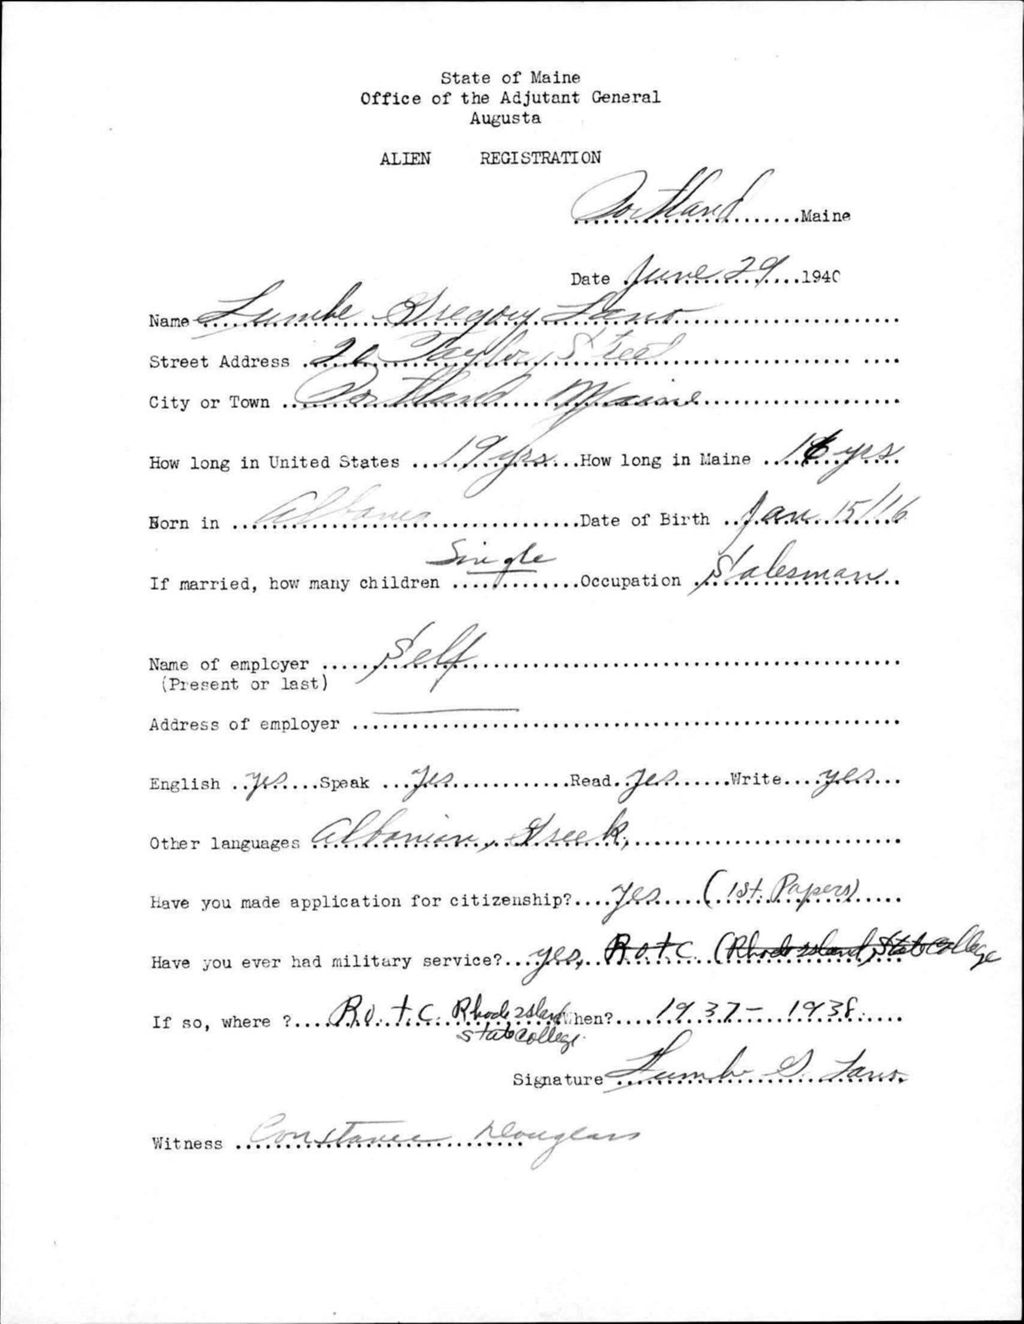 State of Maine
Office of the Adjutant General
Augusta
ALIEN REGISTRATION
Portland Maine
Date June 29 1940
Name Lumbe Gregory
Street Address Taylor Street
City or Town Portland Maine
How long in United States 19 yrs How long in Maine yrs
Born in Albania Date of Birth Jan 15/16
If married, how many children Single Occupation Salesman
Name of employer Self
(Present or last)
Address of employer
English yes Speak yes Read yes Write yes
Other languages Albanian, Greek,
Have you made application for citizenship? yes (1st. Papers)
Have you ever had military service? yes, R.O.T.C. (Rhode Island State College
If so, where ? R.O.T.C. Rhode Island State College When? 1937 - 1938.
Signature G.
Witness Constance Douglass